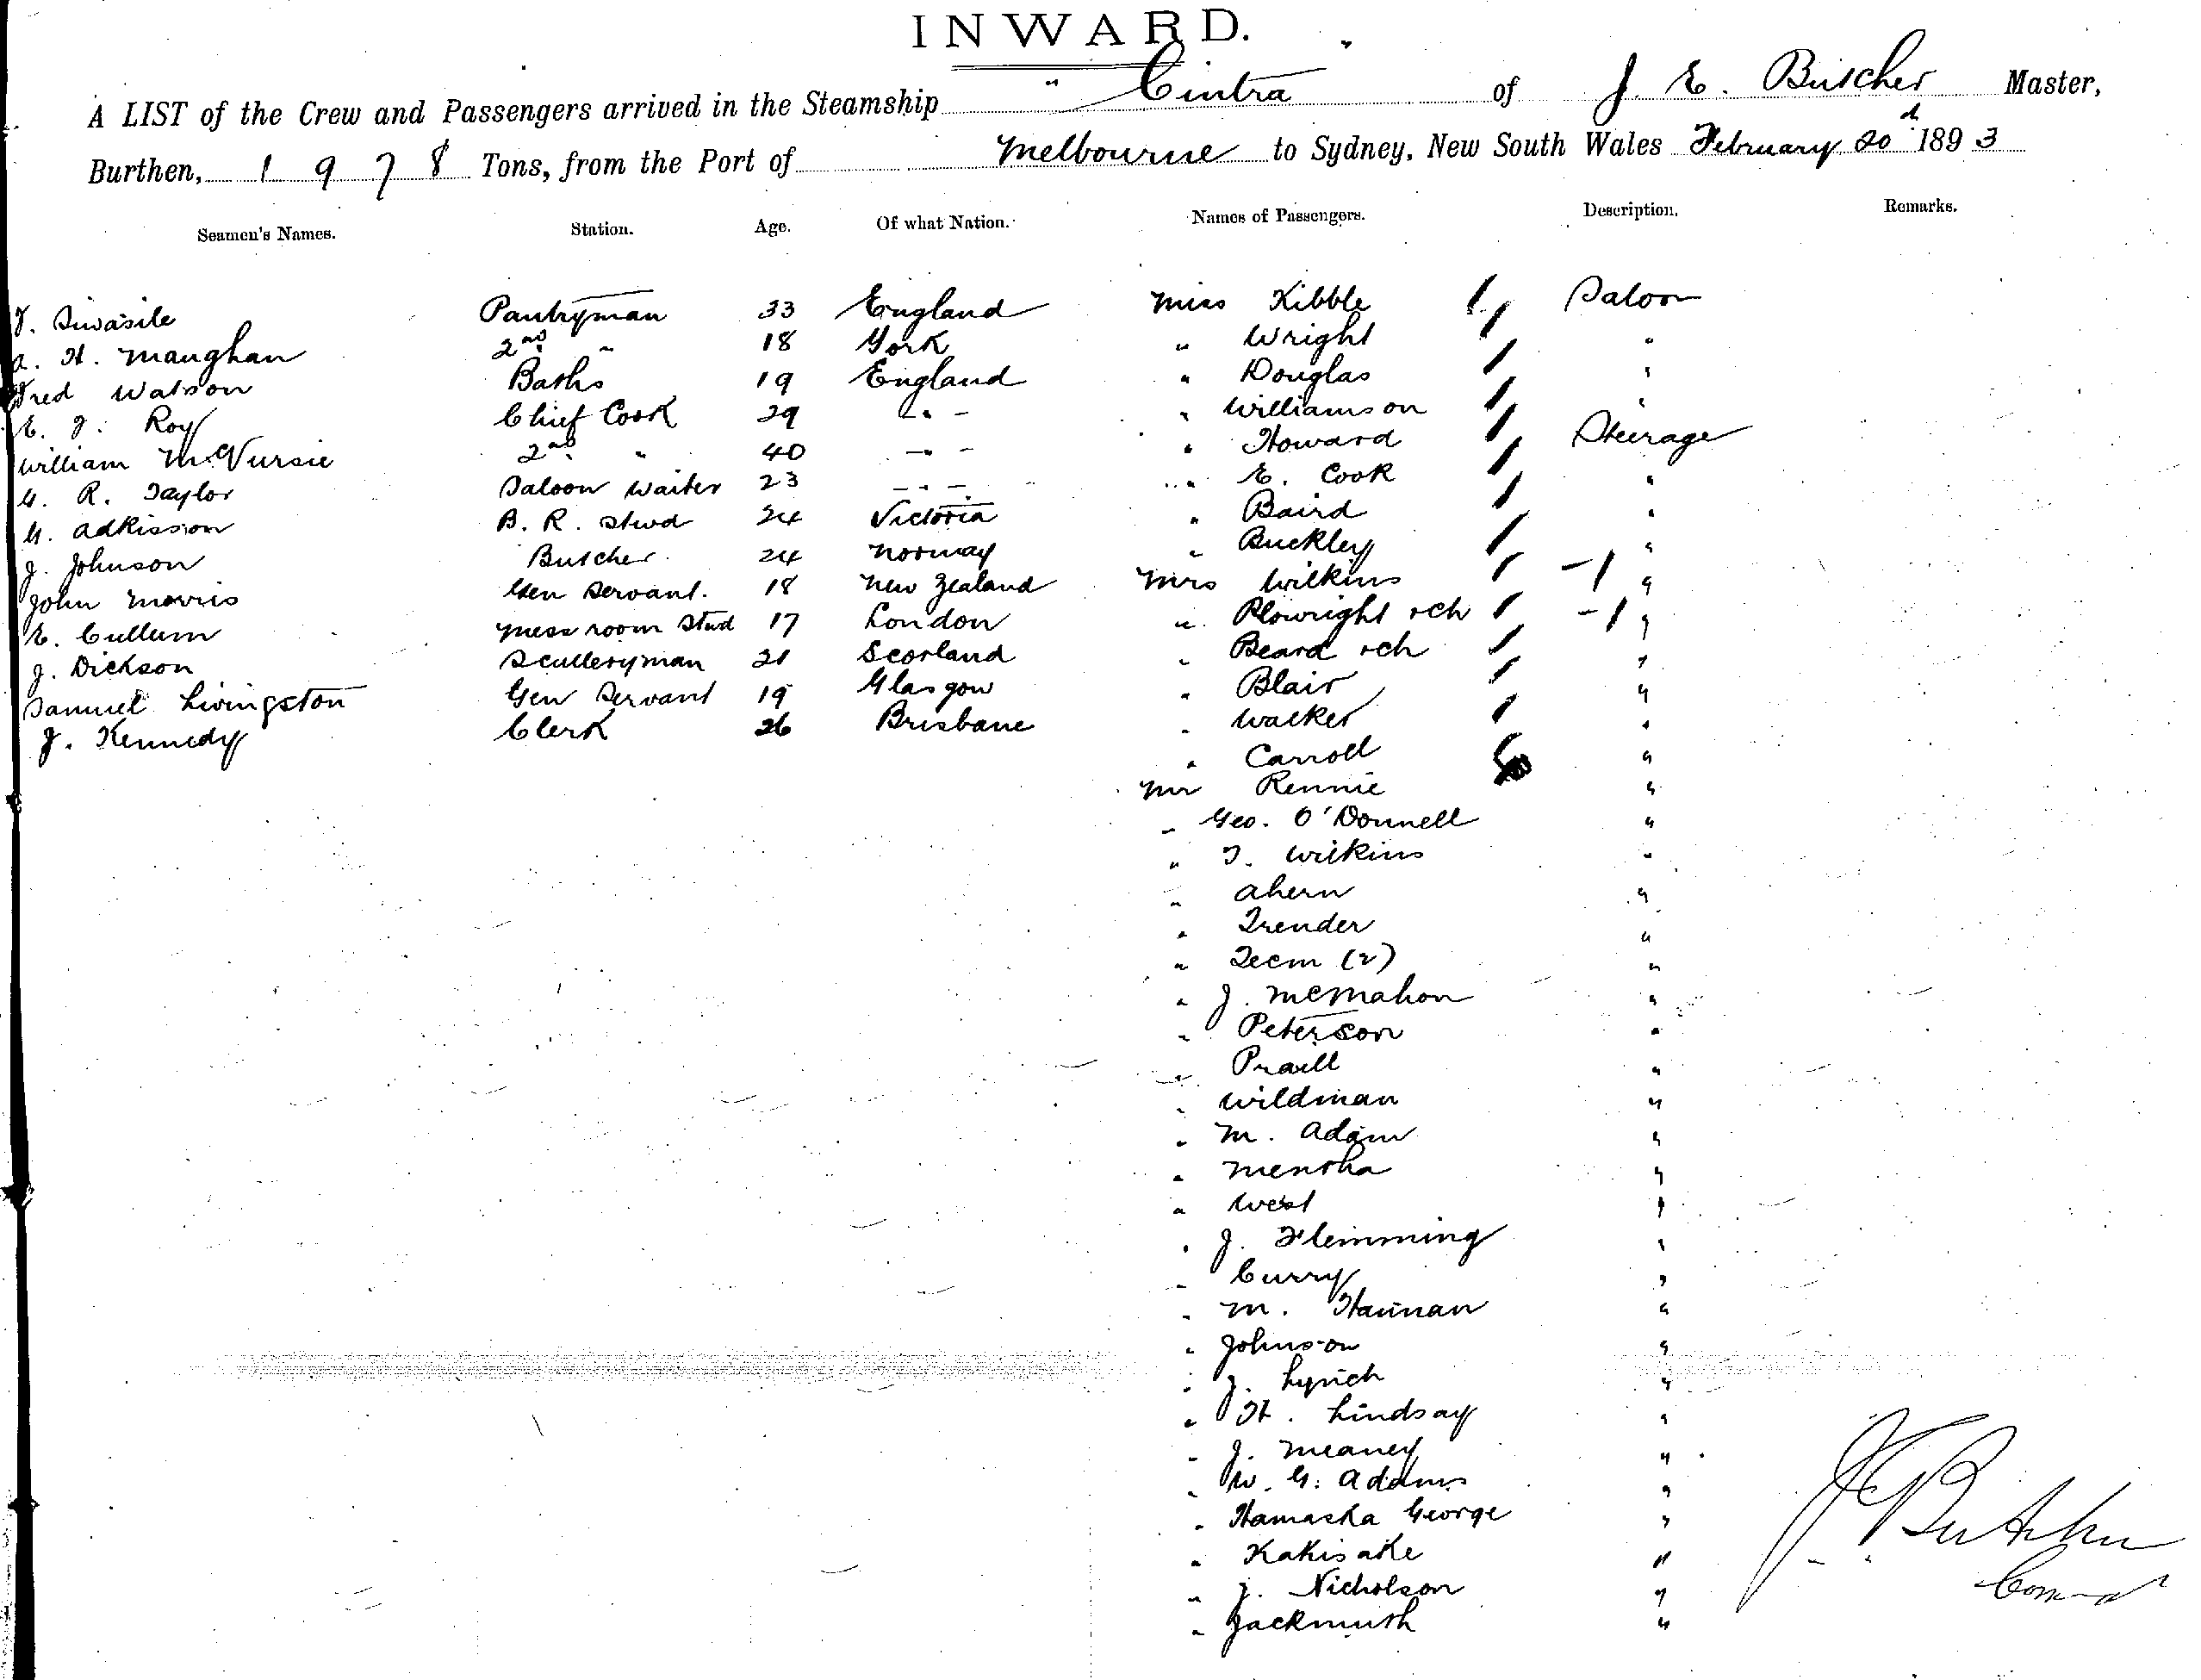 INWARD.
A LIST of the Crew and Passengers arrived in the Steamship "Cintra of J. E. Butcher Master,
Burthen, 1978 Tons, from the Port of Melbourne to Sydney, New South Wales February 20th 1893
Seamen's Names. Station. Age. Of what Nation. Names of Passengers. Description. Remarks.
Pantryman 33 England Miss Kibble 1 Saloon
A. H. Maughan 2nd " 18 York " Wright 1 "
Fred Watson Baths 19 England " Douglas 1 "
E. J. Roy Chief Cook 29 - " - " Williamson 1 "
William 2nd " 40 - " - " Howard 1 Steerage
G. R. Taylor Saloon Waiter 23 - " - " E. Cook 1 "
G. Adkisson B. R. Stwd 24 Victoria " Baird 1 "
J. Johnson Butcher 24 Norway " Buckley 1 "
John Morris Gen Servant. 18 New Zealand Mrs Wilkins 1 -1 "
E. Cullum Mess room Stwd 17 London " Plowright & ch 1 -1 "
J. Dickson Sculleryman 21 Scotland " Beard & ch 1 "
Samuel Livingston Gen Servant 19 Glasgow " Blair 1 "
J. Kennedy Clerk 26 Brisbane " Walker 1 "
" Carroll "
Mr Rennie "
" Geo. O'Donnell "
" T. Wilkins "
" Ahern "
" Trender "
" (2) "
" J. McMahon "
" Peterson "
" Praill "
" Wildman "
" M. Adam "
" Mentha "
" West "
" J. Flemming "
" Curry "
" M. Hannan "
" Johnson "
" J. Lynch "
" H. Lindsay "
" J. Meaney "
" W. G. Adams "
" Hamaska George "
" Kakisake "
" J. Nicholson "
" Jackmuth "
J E Butcher